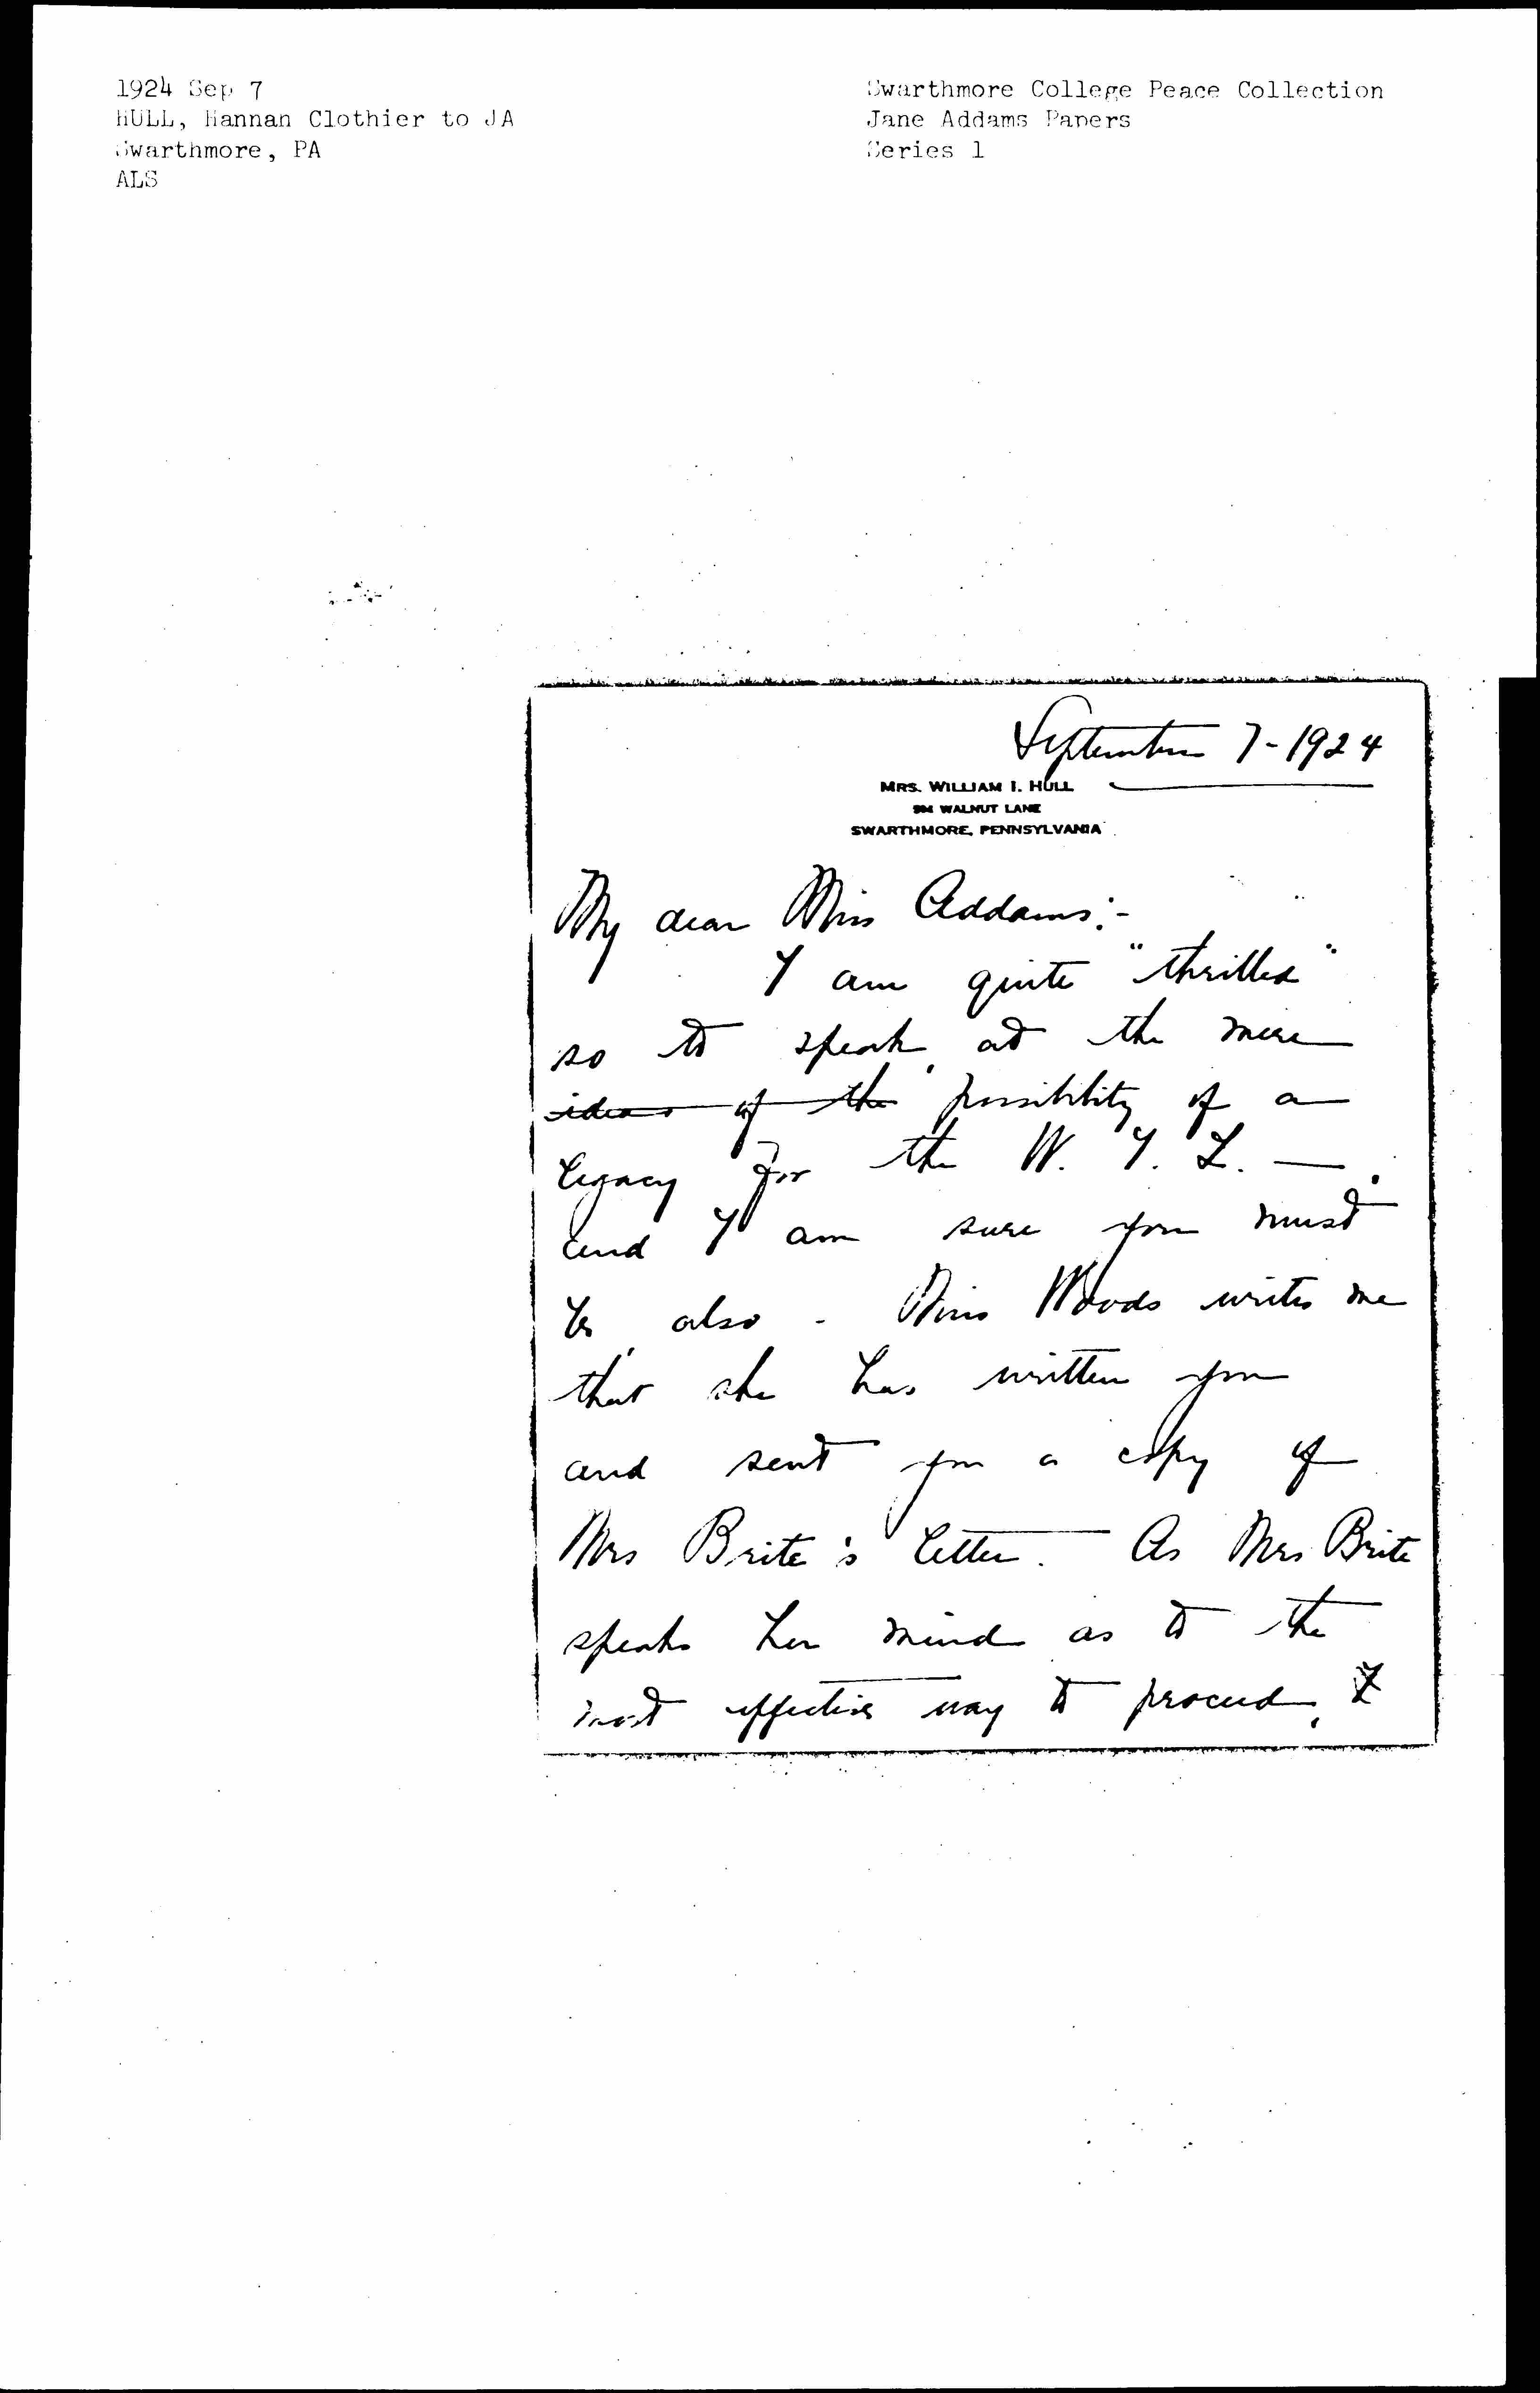 1924 Sep 7
HULL, Hannan Clothier to JA
Swarthmore, PA
ALS
Swarthmore College Peace Collection
Jane Addams Papers
Series 1
September 7-1924
MRS. WILLIAM I. HULL
504 WALNUT LANE
SWARTHMORE, PENNSYLVANIA
My dear Miss Addams:-
I am quite "thrilled"
so to speak, at the mere
ideas of the possibility of a
legacy for the W. I. L. —.
and I am sure you must
be also - Miss Woods writes me
that she has written you
and sent you a copy of
Mrs Brite's letter. As Mrs Brite
speaks her mind as to the
most effective way to proceed, I